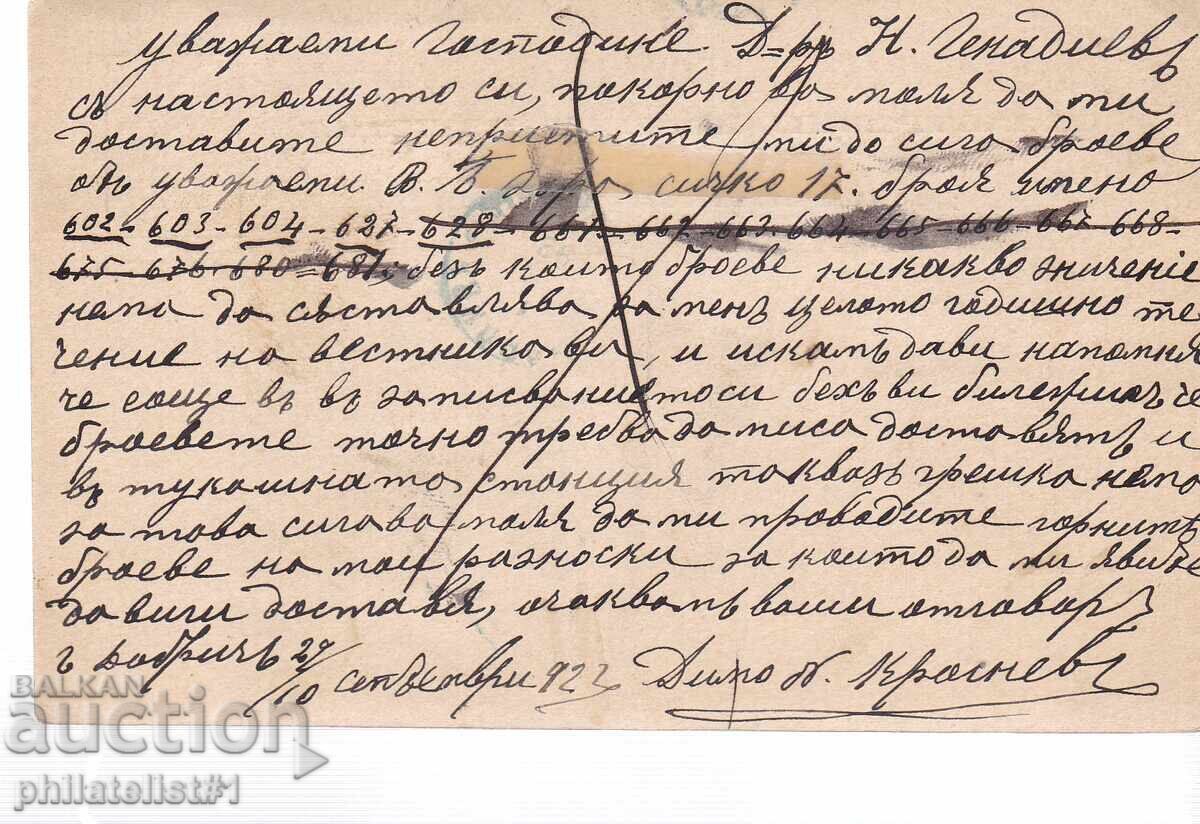 уважаеми Господине. Д=ръ Н. Генадиевъ
съ настоящето си, покорно ва моля да ми
доставите ми до сига броеве
отъ уважаеми. В. сичко 17. броя имено
602 - 603 - 604 - 627 - 628 - 661 - 662 - 663. 664 - 665 - 666 - 667 668 -
675 - 676. 680 = 681; безъ които броеве никакво значение
нема да съставлява за менъ целото годишно те
чение на вестника ви, и искамъ да ви напомня
че еоще въ въ записваниетоси бехъ ви билежилъ че
броевете точно требва да миса доставятъ и
въ тукашната станция такваз грешка нема
за това сига ва моля да ми проводите горнитъ
броеве на мои разноски за които да ми явите
да виги доставя, очаквамъ ваши отговоръ
г Добричъ 29/10 922 Димо Н. Красневъ
BALKAN
auction
philatelist#1